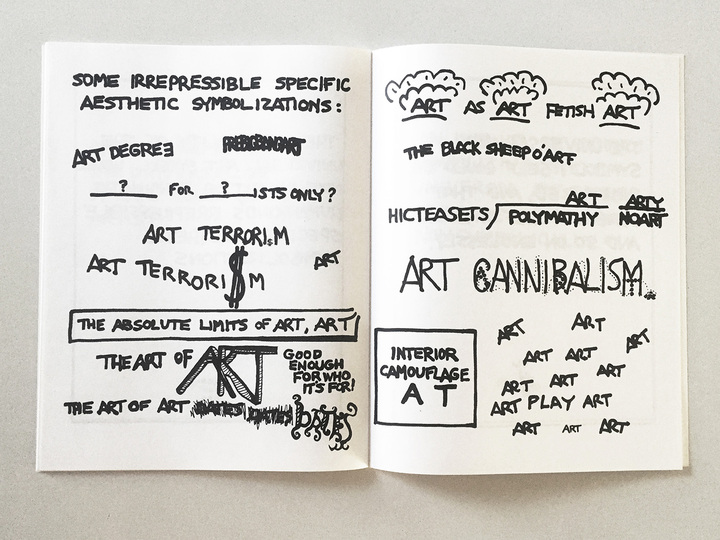 SOME IRREPRESSIBLE SPECIFIC
AESTHETIC SYMBOLIZATIONS:
ART DEGREE
? FOR ? ISTS ONLY?
ART TERRORISM
ART TERRORI$M
ART
THE ABSOLUTE LIMITS OF ART, ART
THE ART OF ART
GOOD
ENOUGH
FOR WHO
IT'S FOR!
THE ART OF ART DATES DATES DATES
ART AS ART FETISH ART
THE BLACK SHEEP O'ART
ART ARTY
HICTEASETS POLYMATHY NOART
ART CANNIBALISM
INTERIOR
CAMOUFLAGE
A T
ART ART ART
ART ART
ART ART ART
ART PLAY ART
ART ART ART